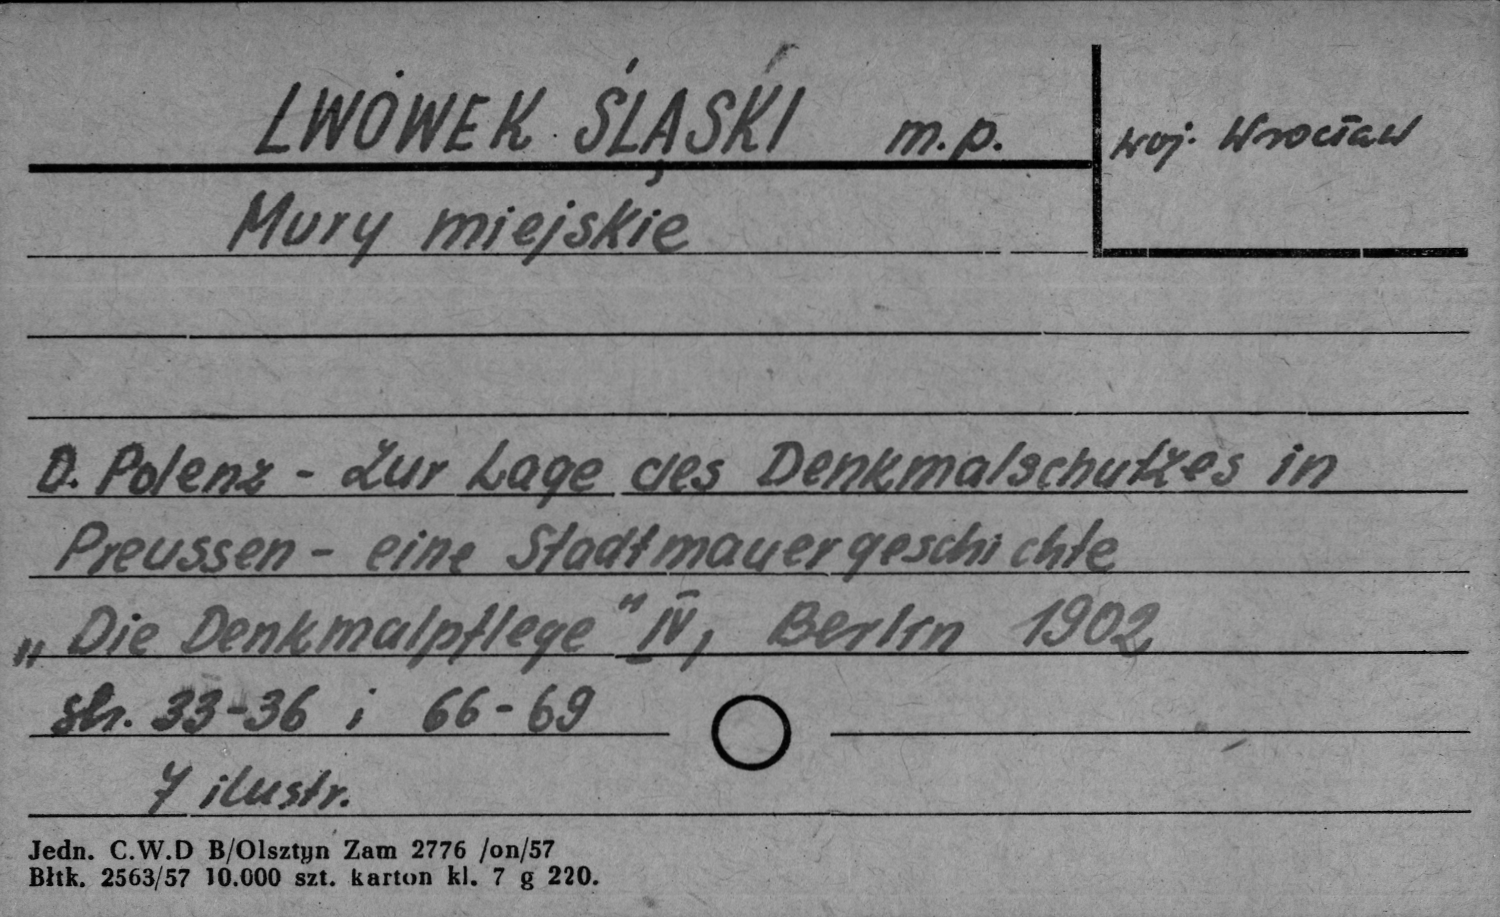 LWÓWEK ŚLĄSKI m.p.
woj. Wrocław
Mury miejskie
O. Polenz - Zur Lage des Denkmalschutzes in
Preussen - eine Stadtmauergeschichte
„Die Denkmalpflege" IV, Berlin 1902
str. 33-36 i 66-69
7 ilustr.
Jedn. C.W.D B/Olsztyn Zam 2776 /on/57
Błtk. 2563/57 10.000 szt. karton kl. 7 g 220.